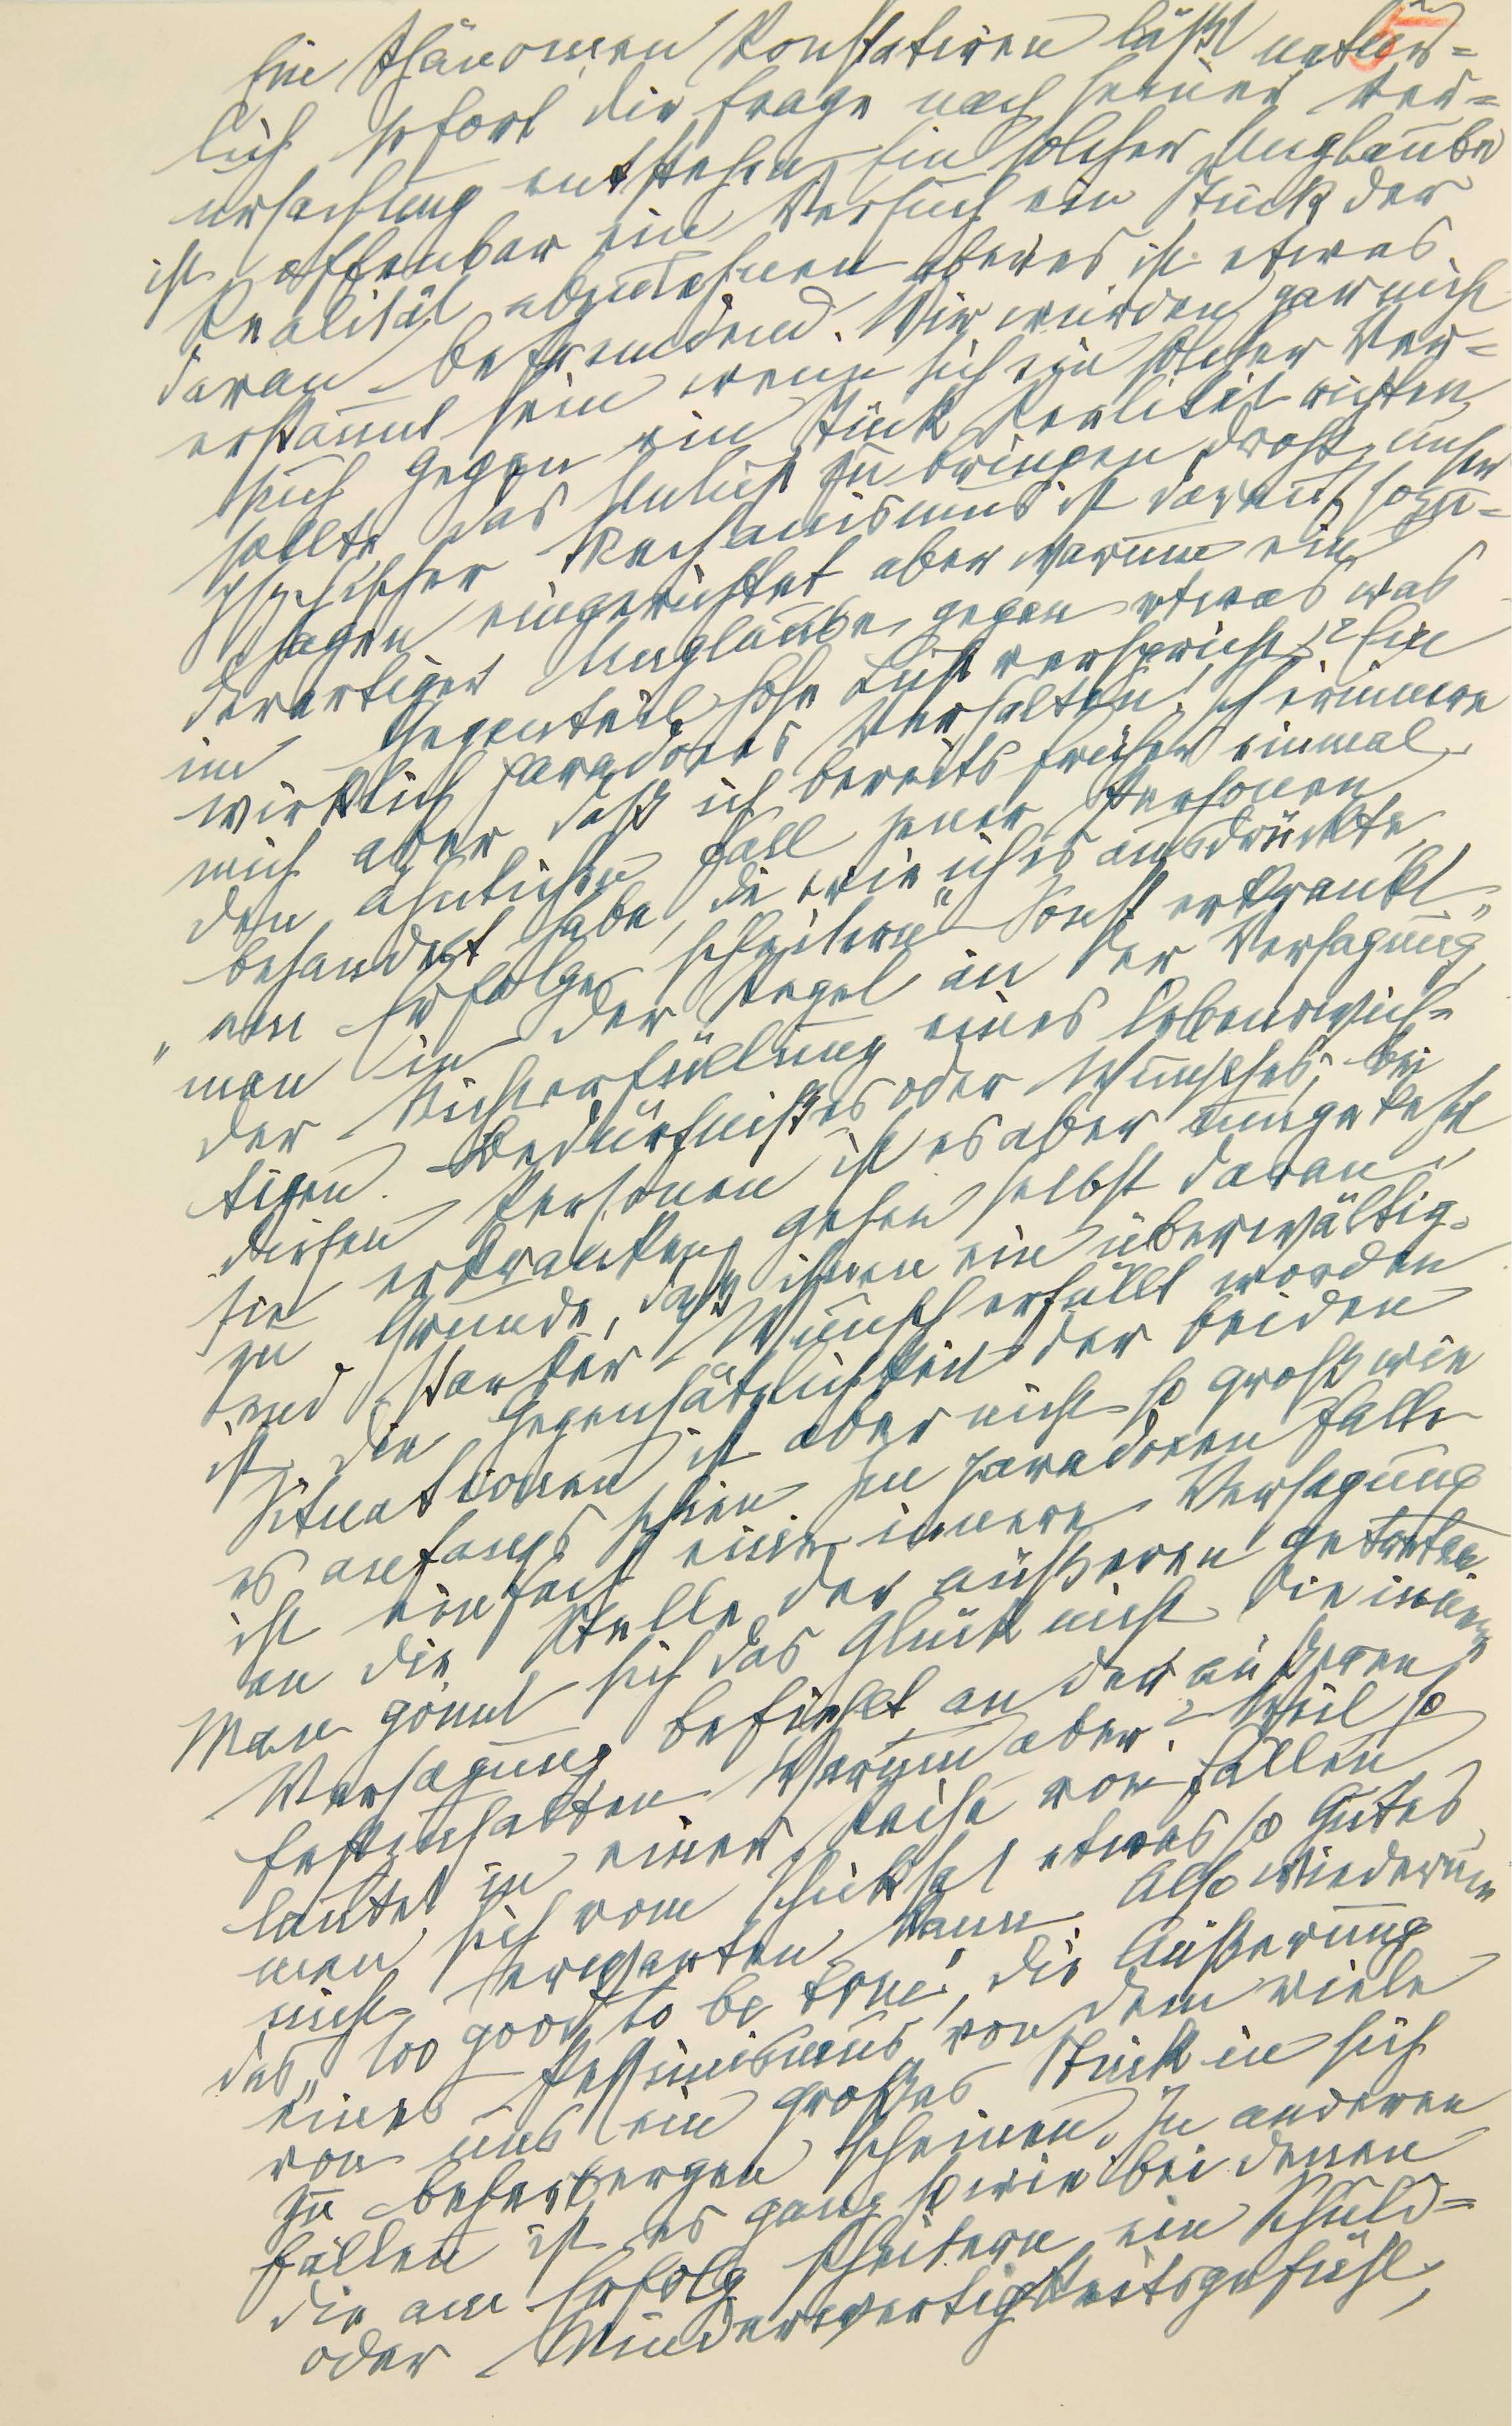 Ein Phänomen konstatiren läßt natür=
lich sofort die Frage nach seiner Ver=
ursachung entstehen. Ein solcher Unglaube
ist offenbar ein Versuch ein Stück der
Realität abzulehnen aber es ist etwas
daran befremdend. Wir würden gar nicht
erstaunt sein wenn sich ein solcher Ver=
such gegen ein Stück Realität richten
sollte das Unlust zu bringen droht, unser
psychischer Mechanismus ist darauf sozu=
sagen eingerichtet aber warum ein
derartiger Unglaube gegen etwas was
im Gegenteil hohe Lust verspricht? Ein
wirklich paradoxes Verhalten! Ich erinnere
mich aber daß ich bereits früher einmal
den ähnlichen Fall jener Personen
behandelt habe, die wie ich es ausdrückte
„am Erfolge scheitern“ Sonst erkrankt
man in der Regel an der Versagung,
der Nichterfüllung eines lebenswich=
tigen Bedürfnißes oder Wunsches; bei
diesen Personen ist es aber umgekehrt
sie erkranken, gehen selbst daran
zu Grunde, daß ihnen ein überwältig=
end starker Wunsch erfüllt worden
ist. Die Gegensätzlichkeit der beiden
Situationen ist aber nicht so groß wie
es anfangs schien Im paradoxen Falle
ist einfach eine innere Versagung
an die Stelle der äußeren getreten
Man gönnt sich das Glück nicht die innere
Versagung befiehlt an der äußeren
festzuhalten Warum aber? Weil so
lautet in einer Reihe von Fällen
man sich vom Schicksal etwas so Gutes
nicht erwarten kann. Also wiederum
das „too good to be true“, die Äußerung
eines Pessimismus von dem viele
von uns ein großes Stück in sich
zu beherbergen scheinen. In anderen
Fällen ist es ganz so wie bei denen
die am Erfolg scheitern ein Schuld=
oder Minderwertigkeitsgefühl,